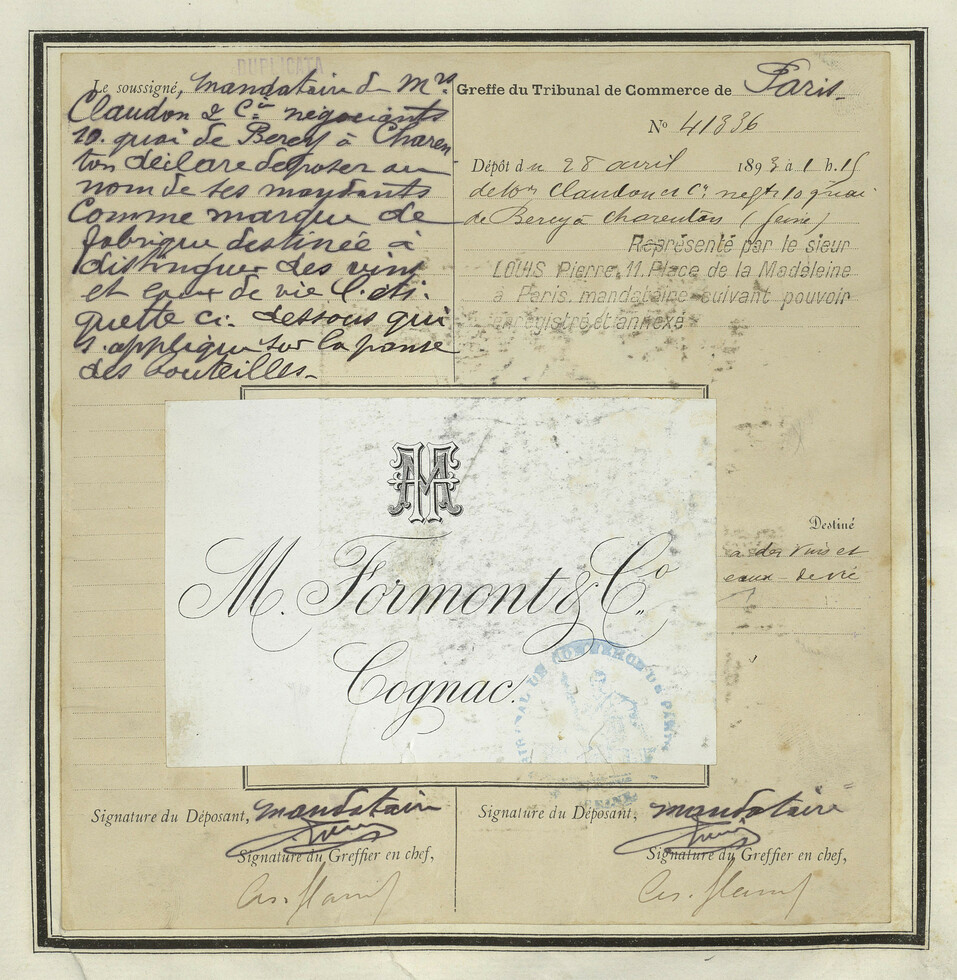 DUPLICATA
Le soussigné, mandataire de Mrs
Claudon & Cie négociants
10. quai de Bercy à Charen
ton déclare déposer au
nom de ses mandants
Comme marque de
fabrique destinée à
distinguer des vins
et eaux de vie l'éti-
quette ci-dessous qui
s'applique sur la panse
des bouteilles-
Greffe du Tribunal de Commerce de Paris-
No 41336
Dépôt du 28 avril 1893 à 1 h. 15
Claudon et Cie negts 10 quai
de Bercy à Charenton (Seine)
Représenté par le sieur
LOUIS Pierre, 11. Place de la Madeleine
à Paris. mandataire suivant pouvoir
enregistré et annexé
M. Formont & Co.
Cognac.
TRIBUNAL DE COMMERCE DE PARIS
SEINE
Destiné
à des vins et
eaux-de vie
Signature du Déposant, mandataire
Signature du Greffier en chef,
Signature du Déposant, mandataire
Signature du Greffier en chef,